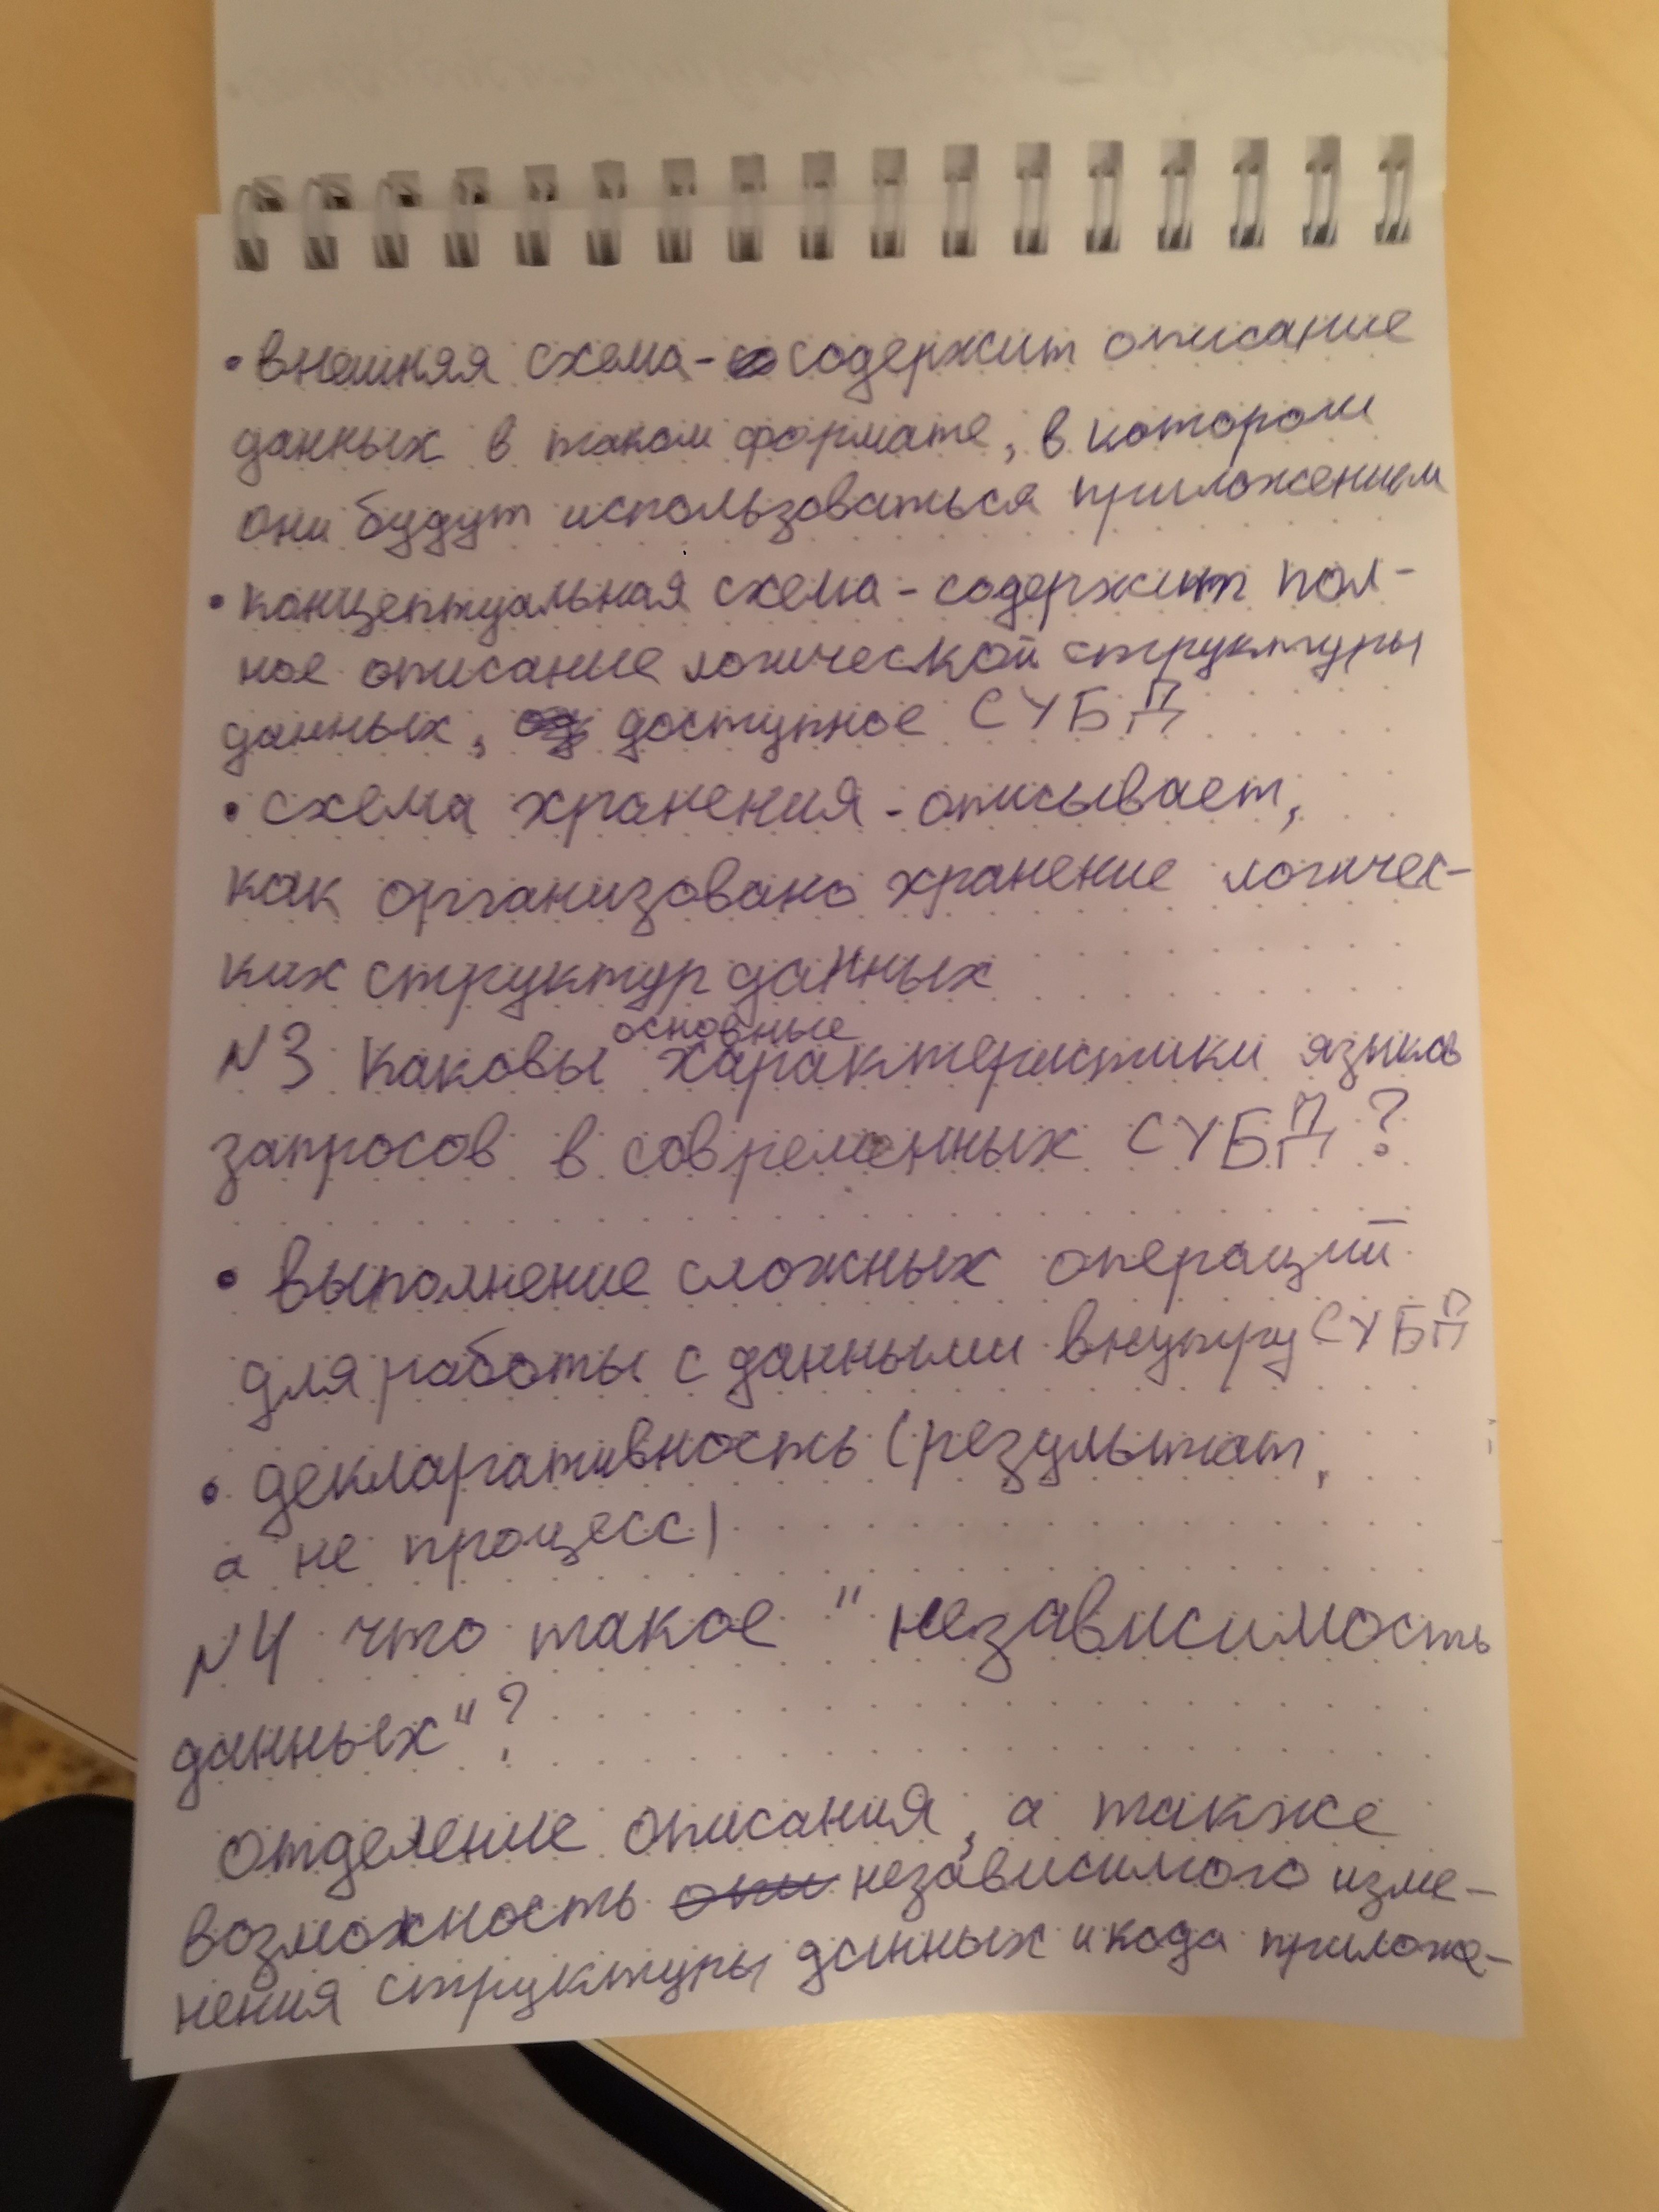 • внешняя схема - содержит описание
данных в таком формате, в котором
они будут использоваться приложением
• концептуальная схема - содержит пол-
ное описание логической структуры
данных, доступное СУБД
• схема хранения - описывает,
как организовано хранение логичес-
ких структур данных
N3 Каковы основные характеристики языков
запросов в современных СУБД?
• выполнение сложных операций
для работы с данными внутри СУБД
• декларативность (результат,
а не процесс)
N4 что такое "независимость
данных"?
отделение описания, а также
возможность они независимого изме-
нения структуры данных и кода приложе-